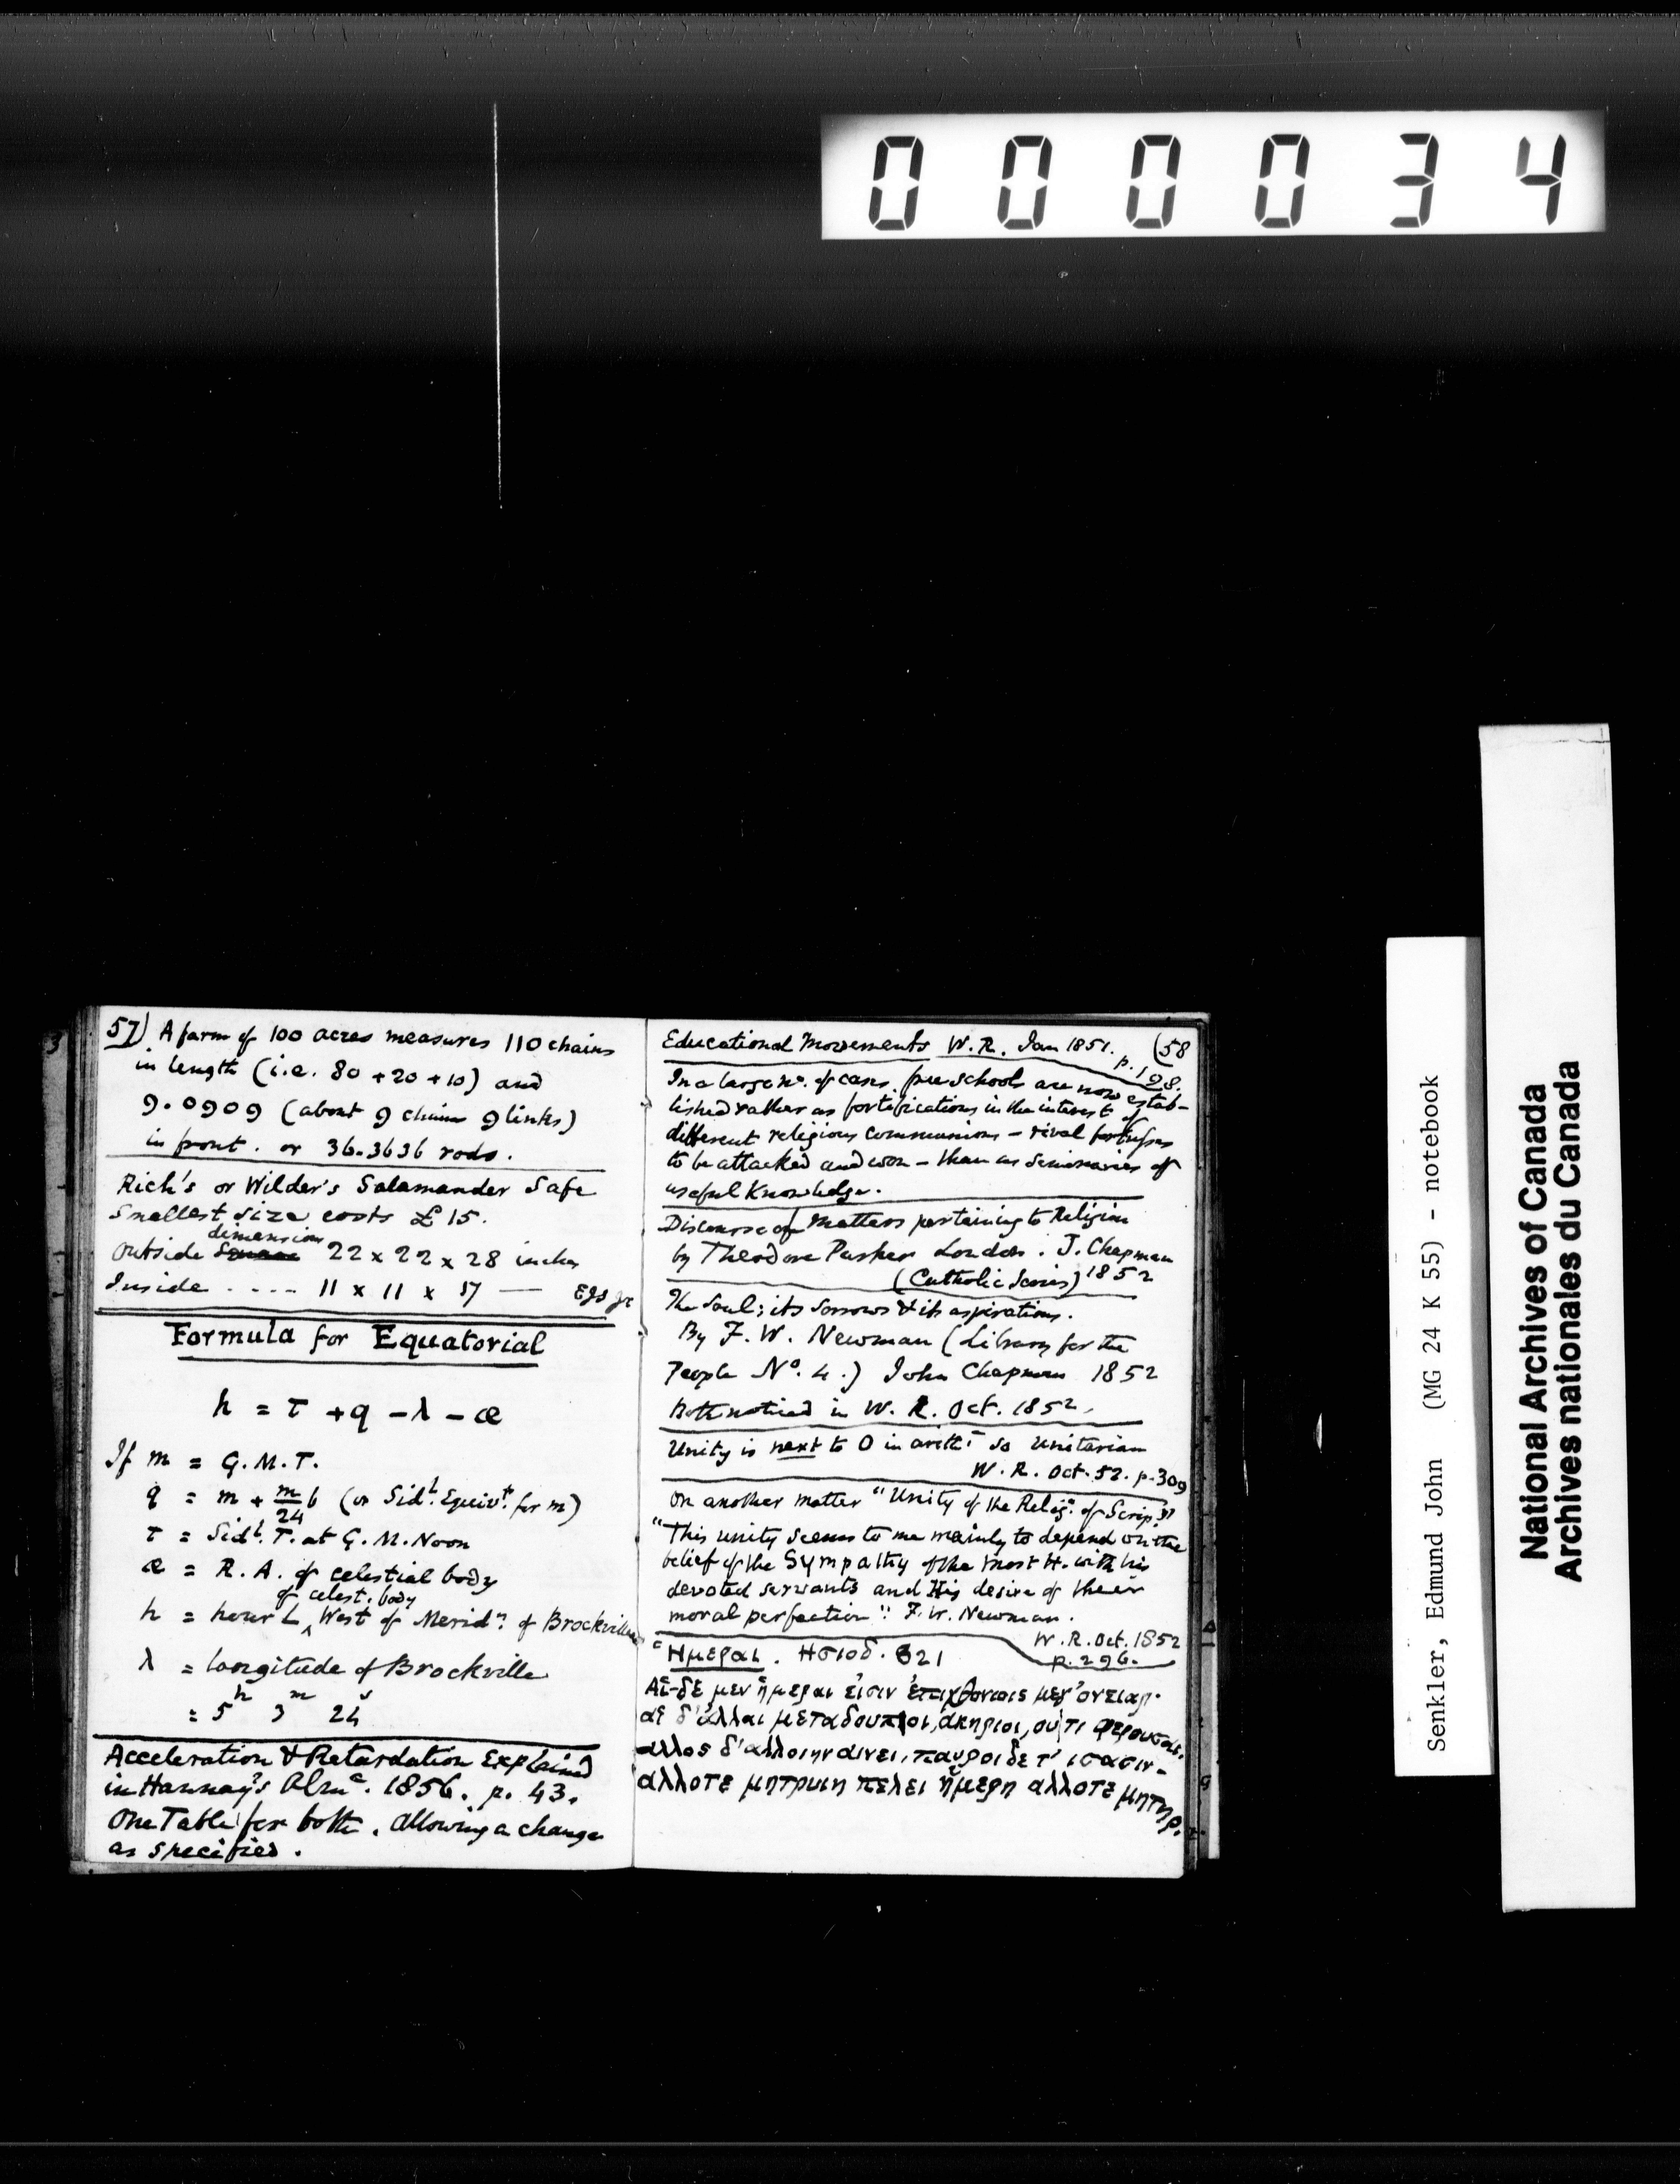 0 0 0 0 3 4
57) A farm of 100 acres measures 110 chains
in length (i.e. 80 + 20 + 10) and
9.0909 (about 9 chains 9 links)
in front. or 36.3636 rods.
Rich's or Wilder's Salamander Safe
Smallest size costs £15.
dimensions
Outside 22 x 22 x 28 inches
Inside .... 11 x 11 x 17 — EJS Jr
Formula for Equatorial
h = τ + q - λ - æ
If m = G.M.T.
q = m + m/24 b (or Sidl. Equivt. for m)
τ = Sidl. T. at G. M. Noon
æ = R. A. of celestial body
of celest. body
h = hour L ‸ West of Meridn. of Brockville
λ = longitude of Brockville
= 5h 3m 24s
Acceleration & Retardation Explained
in Hannay's Almc. 1856. p. 43.
One Table for both. Allowing a change
as specified.
Educational Movements W. R. Jan 1851. (58
p. 198.
In a large no. of cases, free schools are now estab-
lished rather as fortifications in the interest of
different religious communions - rival fortresses
to be attacked and won - than as seminaries of
useful Knowledge.
Discourse of Matters pertaining to Religion
by Theodore Parker London. J. Chapman
(Catholic Series) 1852
The Soul; its sorrows & its aspirations.
By F. W. Newman (Library for the
People No. 4.) John Chapman 1852
Both noticed in W. R. Oct. 1852.
Unity is next to 0 in arithc so Unitarian
W. R. Oct. 52. p. 309
On another matter "Unity of the Relign. of Scrip."
"This unity seems to me mainly to depend on the
belief of the Sympathy of the Most H. with his
devoted servants and His desire of their
moral perfection": F. W. Newman.
W. R. Oct. 1852
p. 296.
Ἡμεραι. Ησιοδ. 821
Αἱ-δε μεν ἡμεραι εἰσιν ἐπιχθονιοις μεγ' ονειαρ.
αἱ δ' ἀλλαι μεταδουποι, ἀκηριοι, ου τι φερουσαι.
αλλος δ' αλλοιην αινει, παυροι δε τ' ισασιν-
αλλοτε μητρυιη πελει ἡμερη αλλοτε μητηρ.
Senkler, Edmund John (MG 24 K 55) - notebook
National Archives of Canada
Archives nationales du Canada